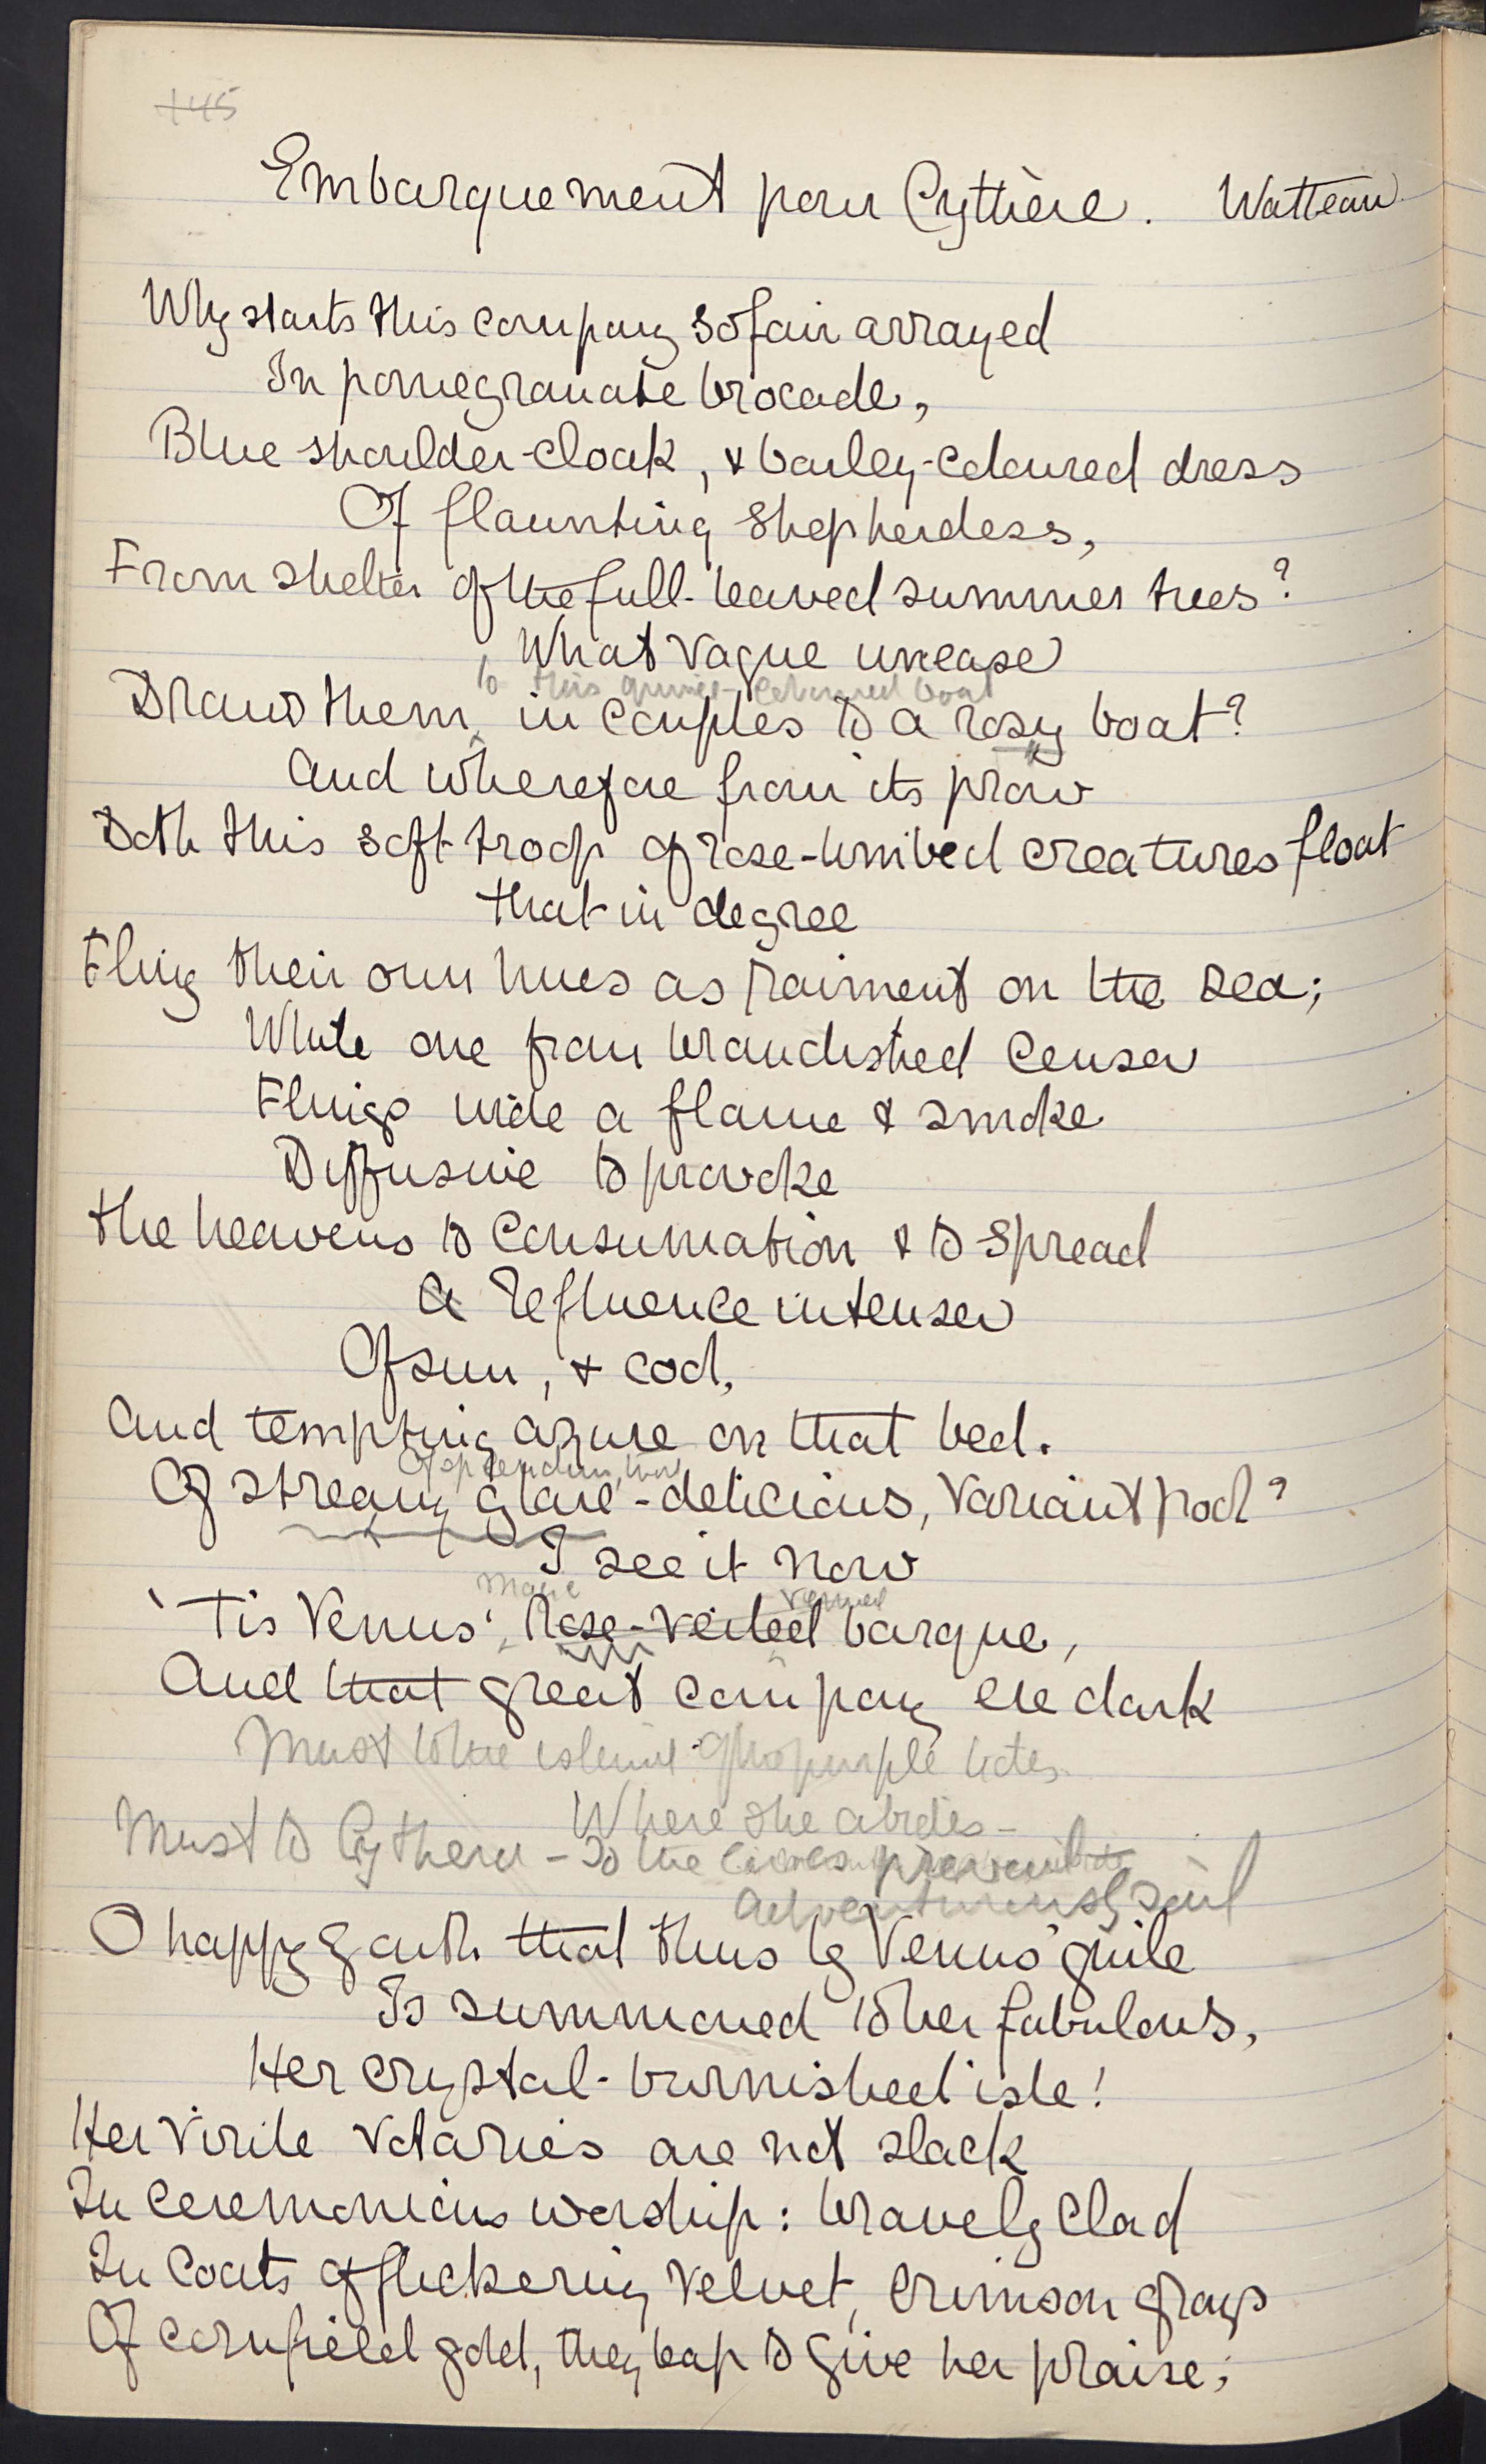 145
Embarquement pour Cythère. Watteau
Why starts this company so fair arrayed
In pomegranate brocade,
Blue shoulder-cloak, & barley-coloured dress
Of flaunting shepherdess,
From shelter of the full-leaved summer trees?
What vague unease
to this coloured boat
Draws them, in couples to a rosy boat?
And wherefore from its prow
Doth this soft troop of rose-limbed creatures float
that in degree
Fling their own hues as raiment on the sea;
While one from brandished censer
Flings wide a flame & smoke
Diffusive to provoke
the heavens to consumation & to spread
A refluence intenser
Of sun, & cool,
And tempting azure on that bed.
Of splendour, how
Of stream, glaze-delicious, variant pool?
I see it now
Magic veined
'Tis Venus', Rose-veiled barque,
And that great company ere dark
Must to the of the purple tides
Where she abides -
Must to Cythera - to the
Adventurously sail
O happy youth that thus by Venus' guile
Is summoned to her fabulous,
Her crystal-burnished isle!
Her virile votaries are not slack
In ceremonious worship: bravely clad
In coats of flickering velvet, crimson grays
Of cornfield gold, they leap to give her praise;